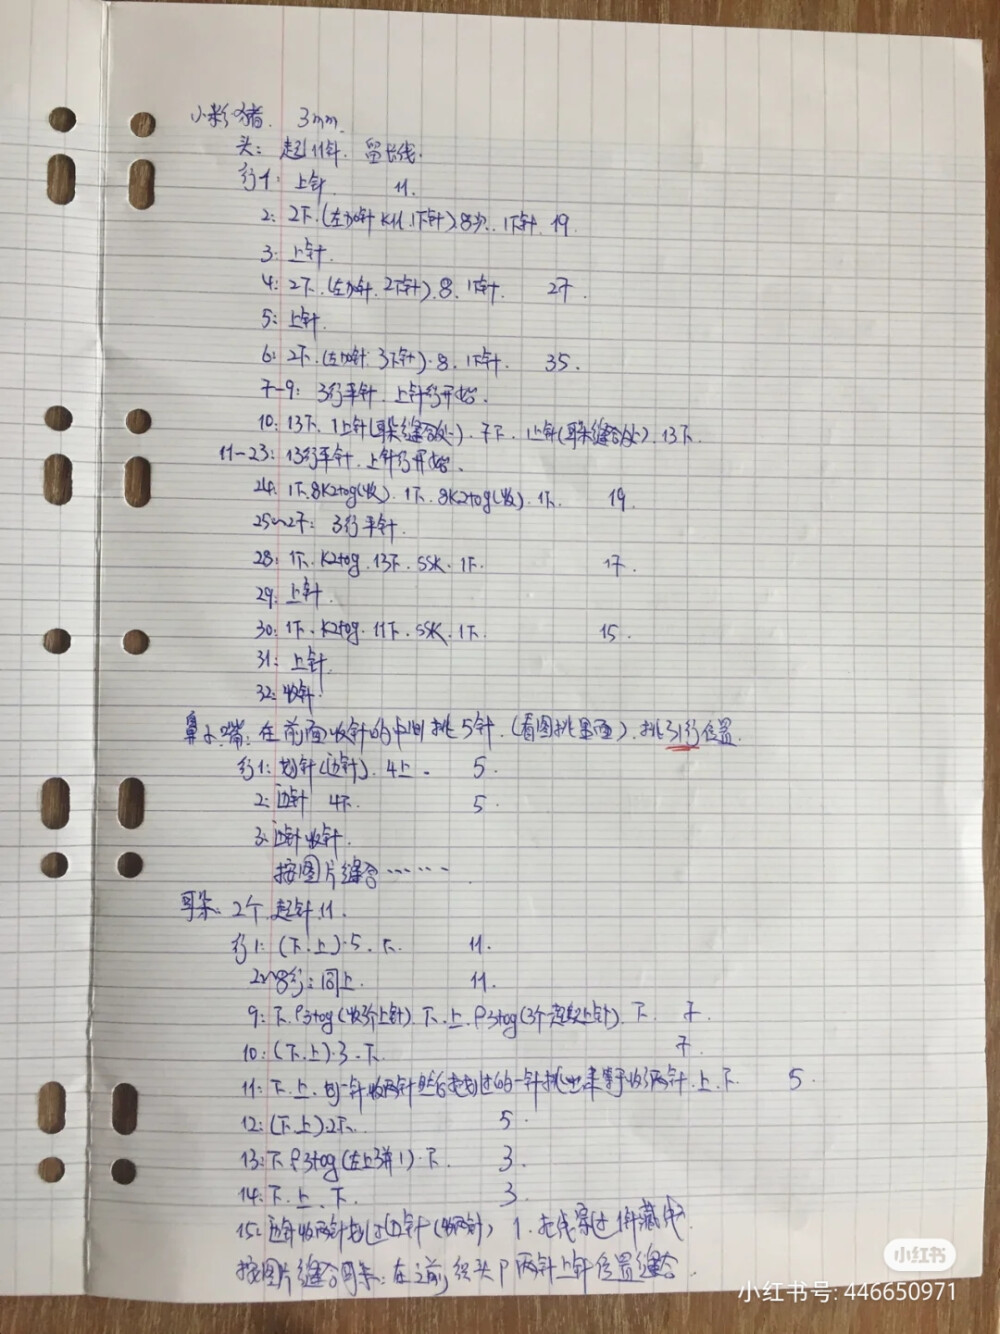 小粉猪. 3mm.
头: 起11针. 留长线.
行1: 上针. 11.
2: 2下.(左加针 KLL 1下针).8次. 1下针. 19.
3: 上针.
4: 2下.(左加针. 2下针).8. 1下针. 27.
5: 上针.
6: 2下.(左加针. 3下针).8. 1下针. 35.
7-9: 3行平针. 上针行开始.
10: 13下. 1上针(耳朵缝合处). 7下. 1上针(耳朵缝合处). 13下.
11-23: 13行平针. 上针行开始.
24: 1下.8K2tog(收). 1下. 8K2tog(收). 1下. 19.
25~27: 3行平针.
28: 1下. K2tog. 13下. SSK. 1下. 17.
29: 上针.
30: 1下. K2tog. 11下. SSK. 1下. 15.
31: 上针.
32: 收针.
鼻子嘴: 在前面收针的中间挑5针.(看图挑里面). 挑引行位置.
行1: 划针(边针). 4上. 5.
2: 边针 4下. 5.
3: 边针收针.
按图片缝合……
耳朵: 2个. 起针11.
行1: (下.上).5. 下. 11.
2~8行: 同上. 11.
9: 下. P3tog(收3个上针). 下. 上. P3tog(3个一起织上针). 下. 7.
10: (下.上).3. 下. 7.
11: 下. 上. 划一针收两针然后把划过的一针挑出来等于收了两针. 上. 下. 5.
12: (下.上).2下. 5.
13: 下. P3tog(左上3并1). 下. 3.
14: 下. 上. 下. 3.
15: 边针收两针划过边针(收两针) 1. 把线穿过1针藏线.
按图片缝合耳朵: 在之前织头P两针上针位置缝合.
小红书
小红书号: 446650971